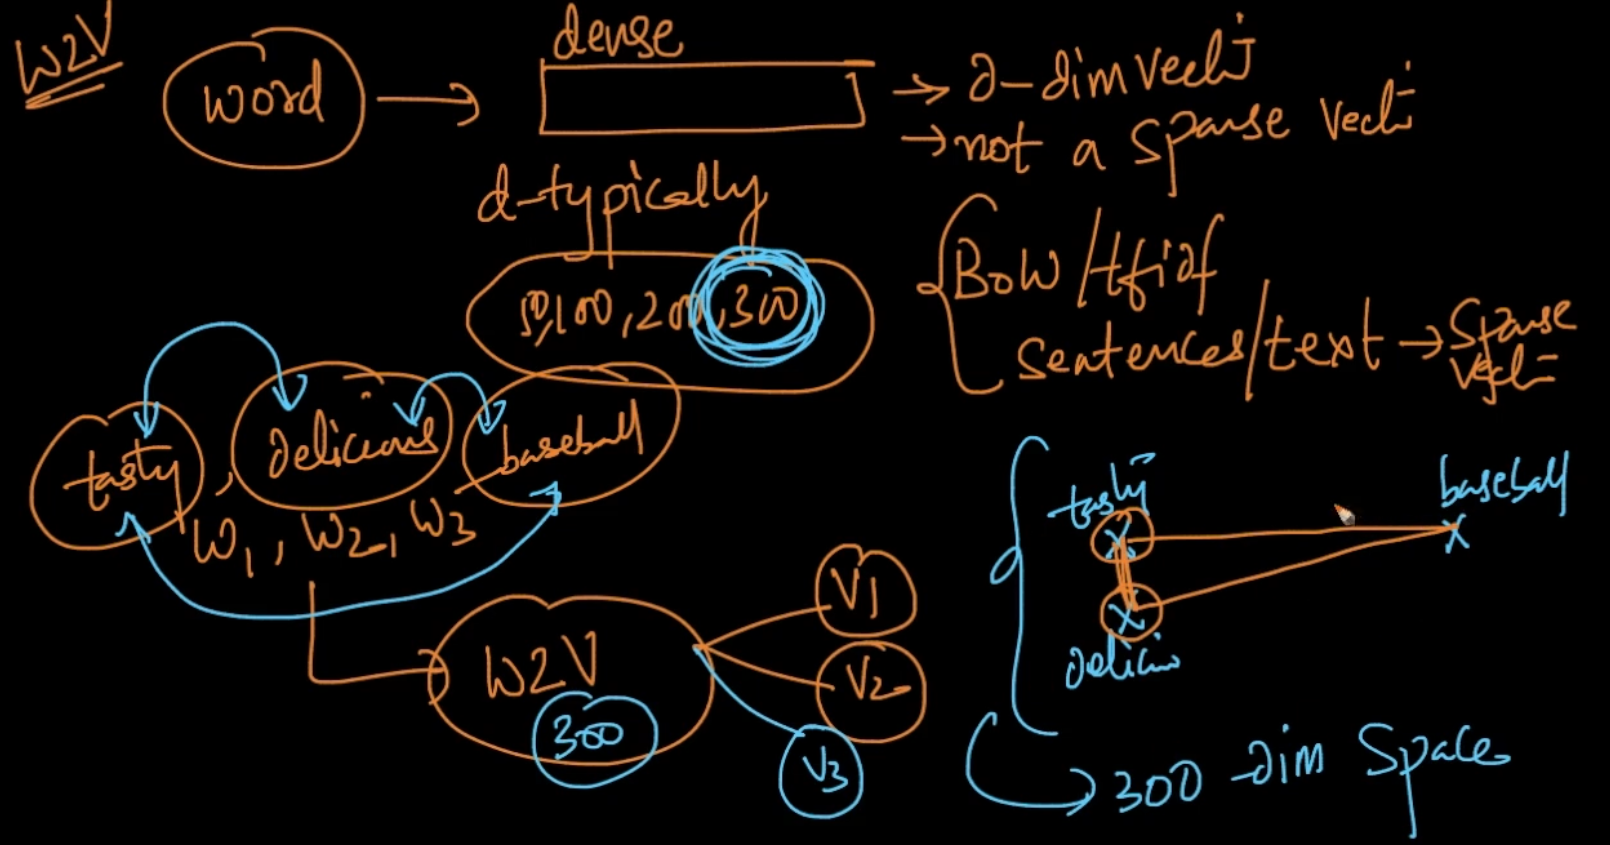 W2V
word
dense
→ d-dim vect
→ not a sparse vect
d-typically
50,100,200,300
BOW/tfidf
sentences/text → sparse
vect
tasty, delicious baseball
w1, w2, w3
W2V
300
V1
V2
V3
tasty
baseball
delicio
→ 300-dim space